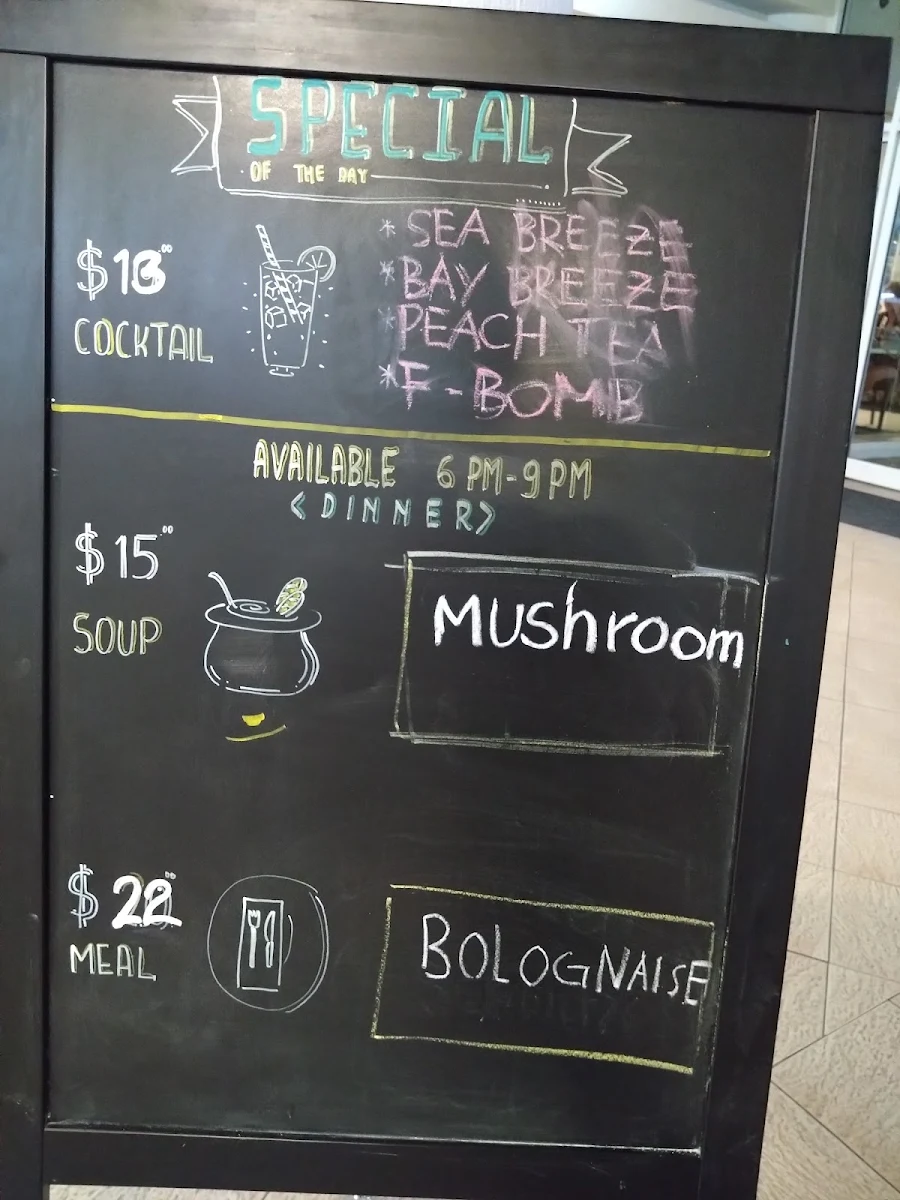 SPECIAL
OF THE DAY
* SEA BREEZE
* BAY BREEZE
* PEACH TEA
* F-BOMB
$18.00
COCKTAIL
AVAILABLE 6 PM-9 PM
<DINNER>
$15.00
SOUP
Mushroom
$22.00
MEAL
BOLOGNAISE